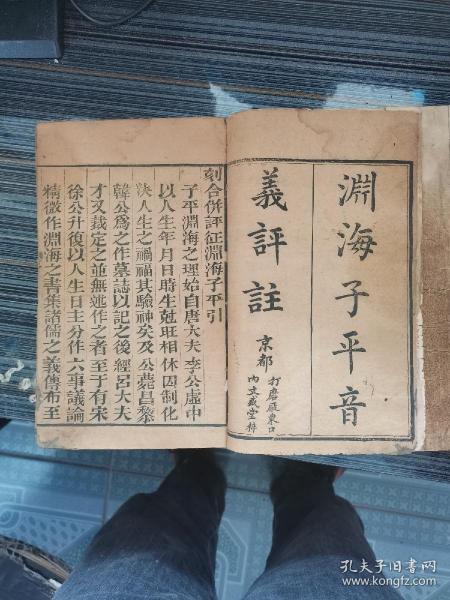 淵海子平音
義評註
京都
打磨厰東口
內文成堂梓
刻合併評註淵海子平引
子平淵海之理始自唐大夫李公虛中
以人生年月日時生尅旺相休囚制化
決人生之禍福其驗神矣及公薨昌黎
韓公爲之作墓誌以記之後經呂大夫
才又裁定之並無述作之者至于有宋
徐公升復以人生日主分作六事議論
精微作淵海之書集諸儒之義傳布至
孔夫子旧书网
www.kongfz.com